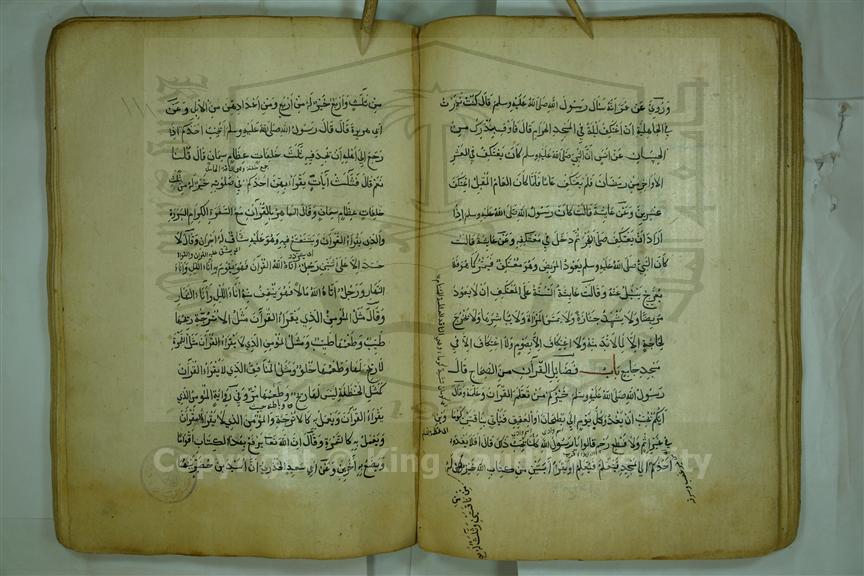 وروي عن عمر انه سأل رسول الله صلى الله عليه وسلم قال كنت نذرت
في الجاهلية ان اعتكف ليلة في المسجد الحرام قال فاوف بنذرك من
الحسان عن انس ان النبي صلى الله عليه وسلم كان يعتكف في العشر
الاواخر من رمضان فلم يعتكف عاما فلما كان العام المقبل اعتكف
عشرين وعن عايشة قالت كان رسول الله صلى الله عليه وسلم اذا
اراد ان يعتكف صلى الفجر ثم دخل في معتكفه وعن عايشة قالت
كان النبي صلى الله عليه وسلم يعود المريض وهو معتكف فيمر كما هو فلا
يعرج يسئل عنه وقالت عايشة السنة على المعتكف ان لا يعود
مريضا ولا يشهد جنازة ولا يمس المراة ولا يباشرها ولا يخرج
لحاجة الا لما لا بد منه ولا اعتكاف الا بصوم ولا اعتكاف الا في
مسجد جامع باب فضايل القرآن من الصحاح قال
رسول الله صلى الله عليه وسلم خيركم من تعلم القرآن وعلمه وقال
ايكم يحب ان يغدو كل يوم الى بطحان او العقيق فيأتي بناقتين كوماوين
في غير اثم ولا قطع رحم قالوا يا رسول الله كلنا يحب ذلك قال افلا يغدو
احدكم الى المسجد فيعلم او يقرأ آيتين من كتاب الله خير له
من ناقتين وثلث
من ثلث واربع خير له من اربع ومن اعدادهن من الابل وعن
ابي هريرة قال قال رسول الله صلى الله عليه وسلم ايحب احدكم اذا
رجع الى اهله ان يجد فيه ثلث خلفات عظام سمان قال قلنا
نعم قال فثلث آيات يقرأ بهن احدكم في صلوته خير له من ثلث
خلفات عظام سمان وقال الماهر بالقرآن مع السفرة الكرام البررة
والذي يقرأ القرآن ويتتعتع فيه وهو عليه شاق له اجران وقال لا
حسد الا على اثنين رجل اتاه الله القرآن فهو يقوم به اناء الليل واناء
النهار ورجل اتاه الله مالا فهو ينفق منه اناء الليل واناء النهار
وقال مثل المؤمن الذي يقرأ القرآن مثل الاترجة ريحها
طيب وطعمها طيب ومثل المؤمن الذي لا يقرأ القرآن مثل التمرة
لا ريح لها وطعمها حلو ومثل المنافق الذي لا يقرأ القرآن
كمثل الحنظلة ليس لها ريح وطعمها مر وفي رواية المؤمن الذي
يقرأ القرآن ويعمل به كالاترجة والمؤمن الذي لا يقرأ القرآن
ويعمل به كالتمرة وقال ان الله تعا يرفع بهذا الكتاب اقواما
ويضع به آخرين وعن ابي سعيد الخدري ان اسيد بن حضير بينما
Copyright © King Saud University